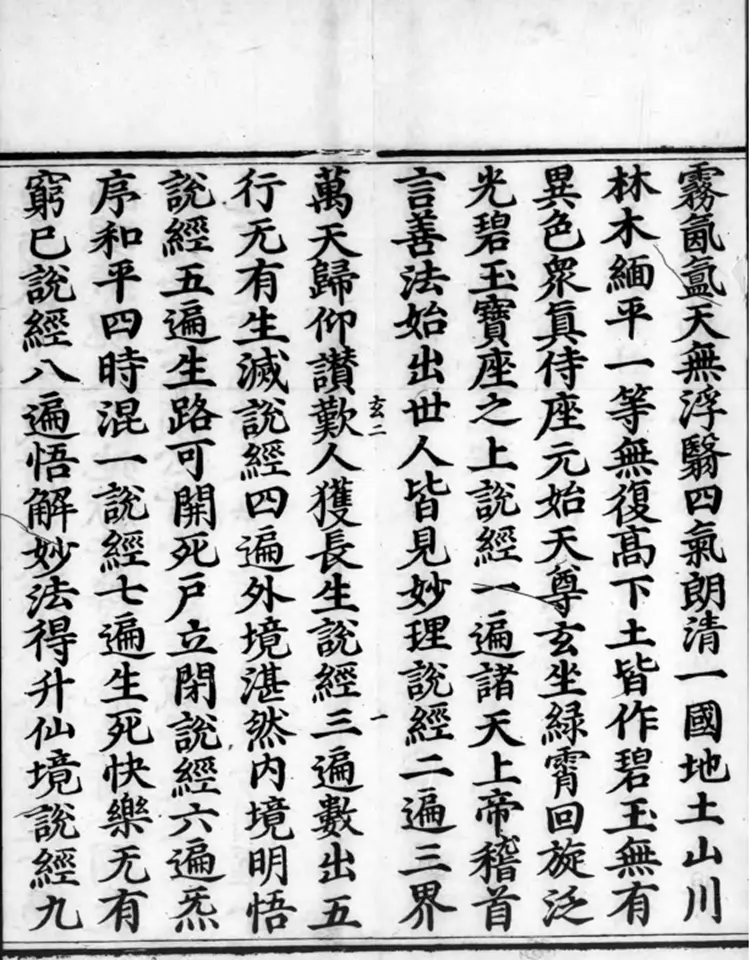 霧氤氳天無浮翳四氣朗清一國地土山川
林木緬平一等無復髙下土皆作碧玉無有
異色衆真侍座元始天尊玄坐緑霄回旋泛
光碧玉寶座之上說經一遍諸天上帝稽首
言善法始出世人皆見妙理說經二遍三界
玄二 一
萬天歸仰讃歎人獲長生說經三遍數出五
行无有生滅說經四遍外境湛然内境明悟
說經五遍生路可開死戶立閇說經六遍炁
序和平四時混一說經七遍生死快樂无有
窮已說經八遍悟解妙法得升仙境說經九